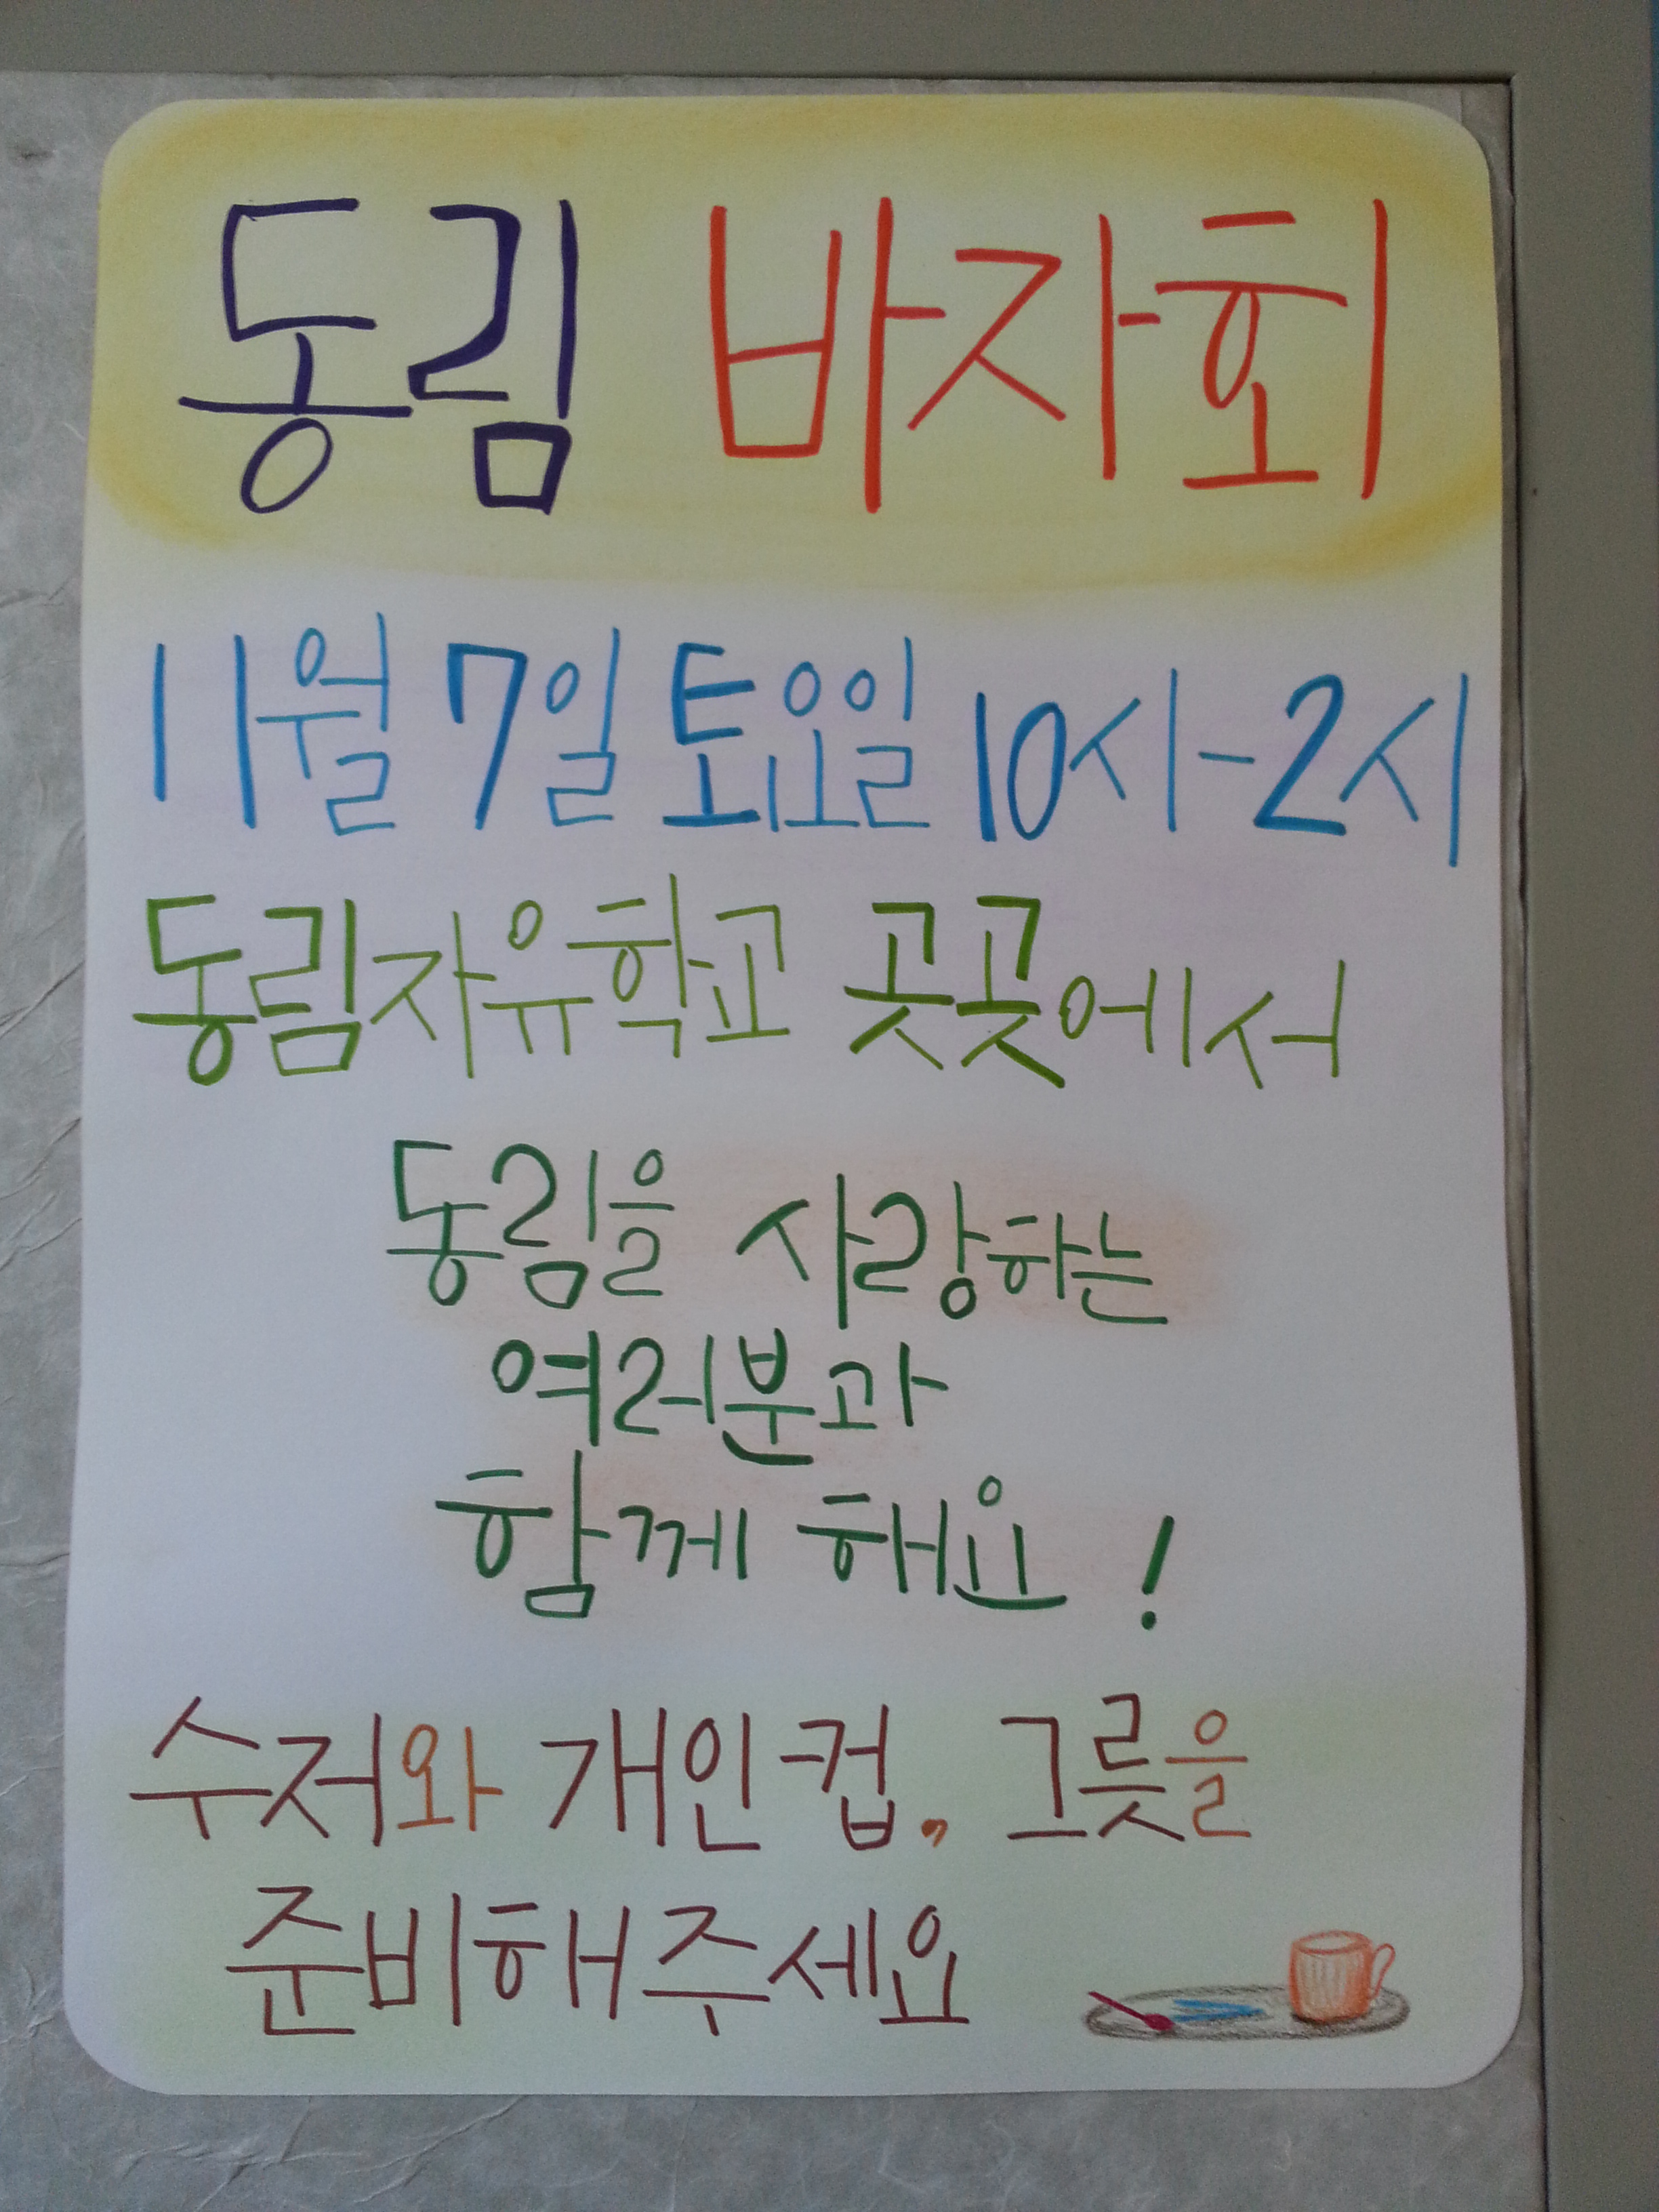 동림 바자회
11월 7일 토요일 10시-2시
동림자유학교 곳곳에서
동림을 사랑하는
여러분과
함께 해요!
수저와 개인컵, 그릇을
준비해주세요